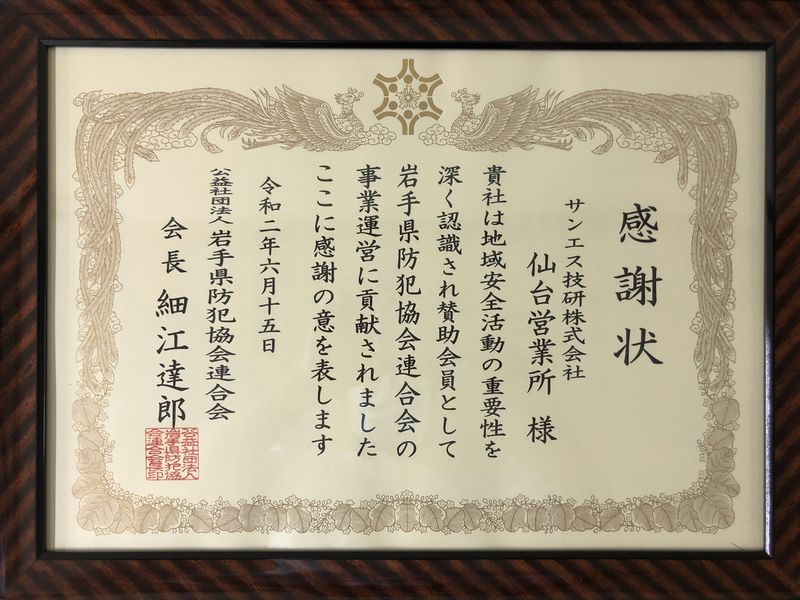 感謝状
サンエス技研株式会社
仙台営業所 様
貴社は地域安全活動の重要性を
深く認識され賛助会員として
岩手県防犯協会連合会の
事業運営に貢献されました
ここに感謝の意を表します
令和二年六月十五日
公益社団法人 岩手県防犯協会連合会
会長 細江達郎
公益社団法人
岩手県防犯協
会連合会長印